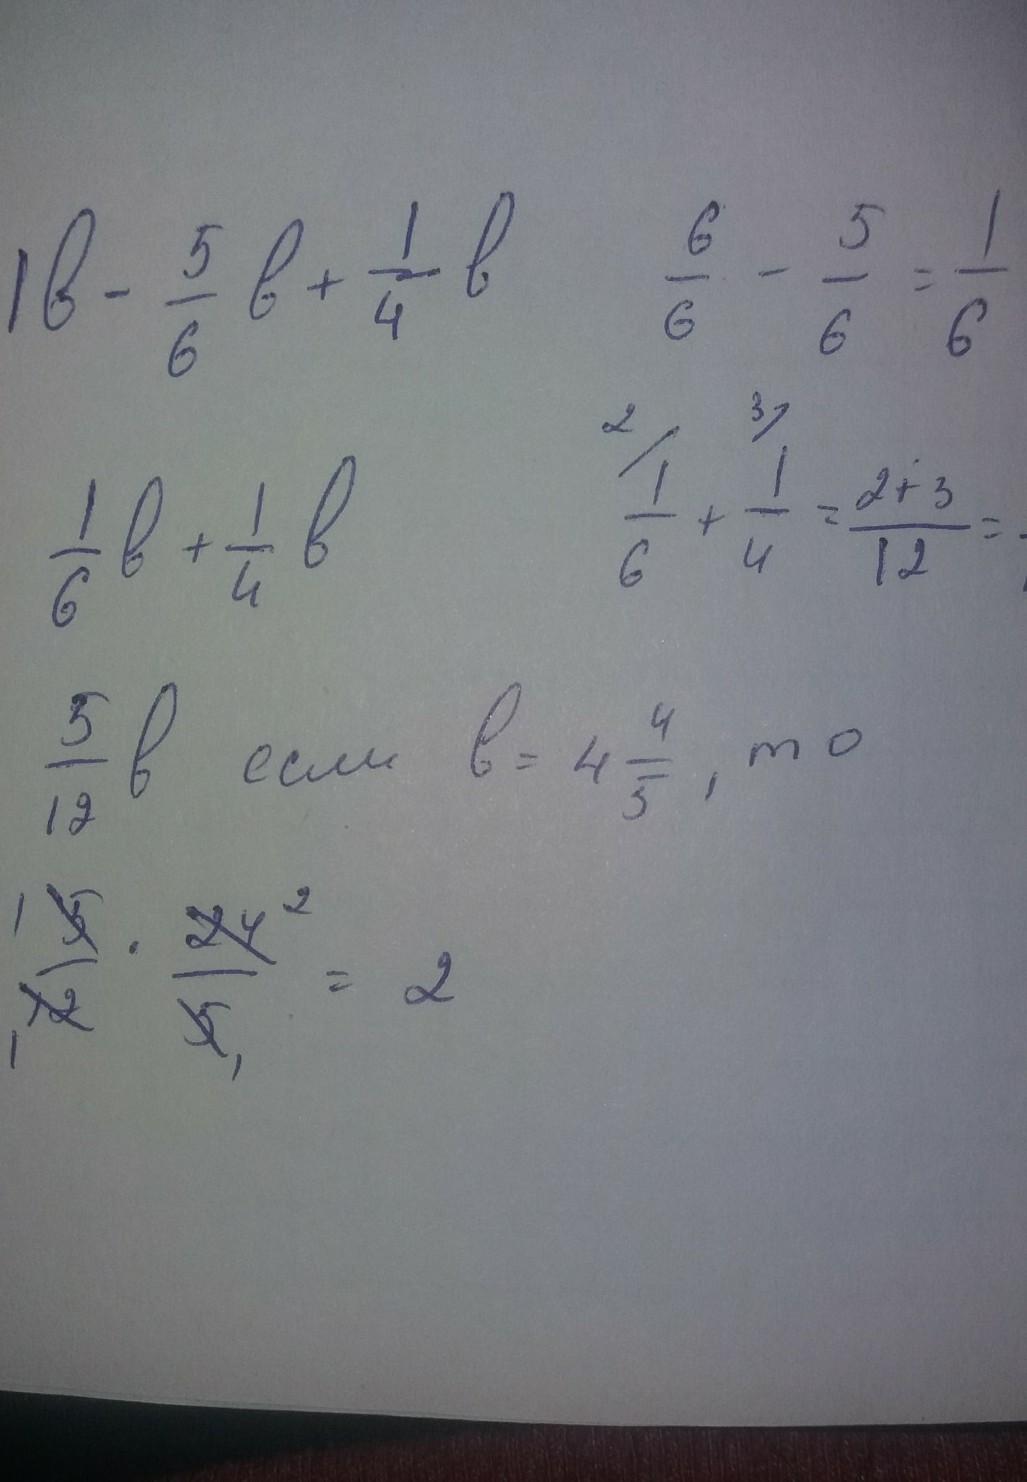 1в - 5/6 в + 1/4 в    6/6 - 5/6 = 1/6
1/6 в + 1/4 в    2/ 1/6 + 3/ 1/4 = (2+3)/12 =
5/12 в если в = 4 4/5, то
1 5/12 1 · 24 2/5 1 = 2